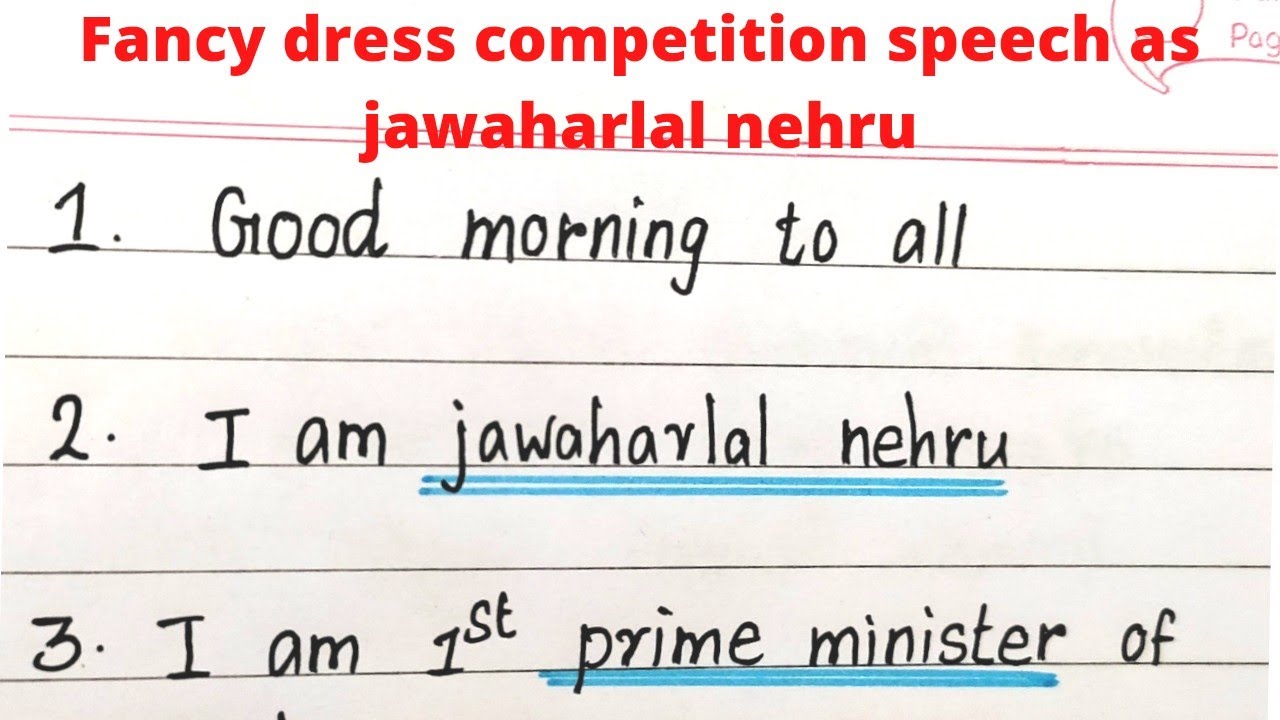 Fancy dress competition speech as
jawaharlal nehru
Pag
1. Good morning to all
2. I am jawaharlal nehru
3. I am 1st prime minister of